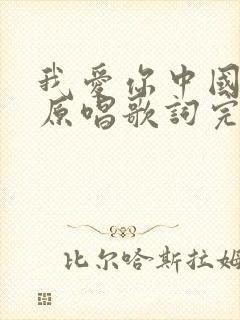 我愛你中國
原唱歌詞完
比尔哈斯拉姆